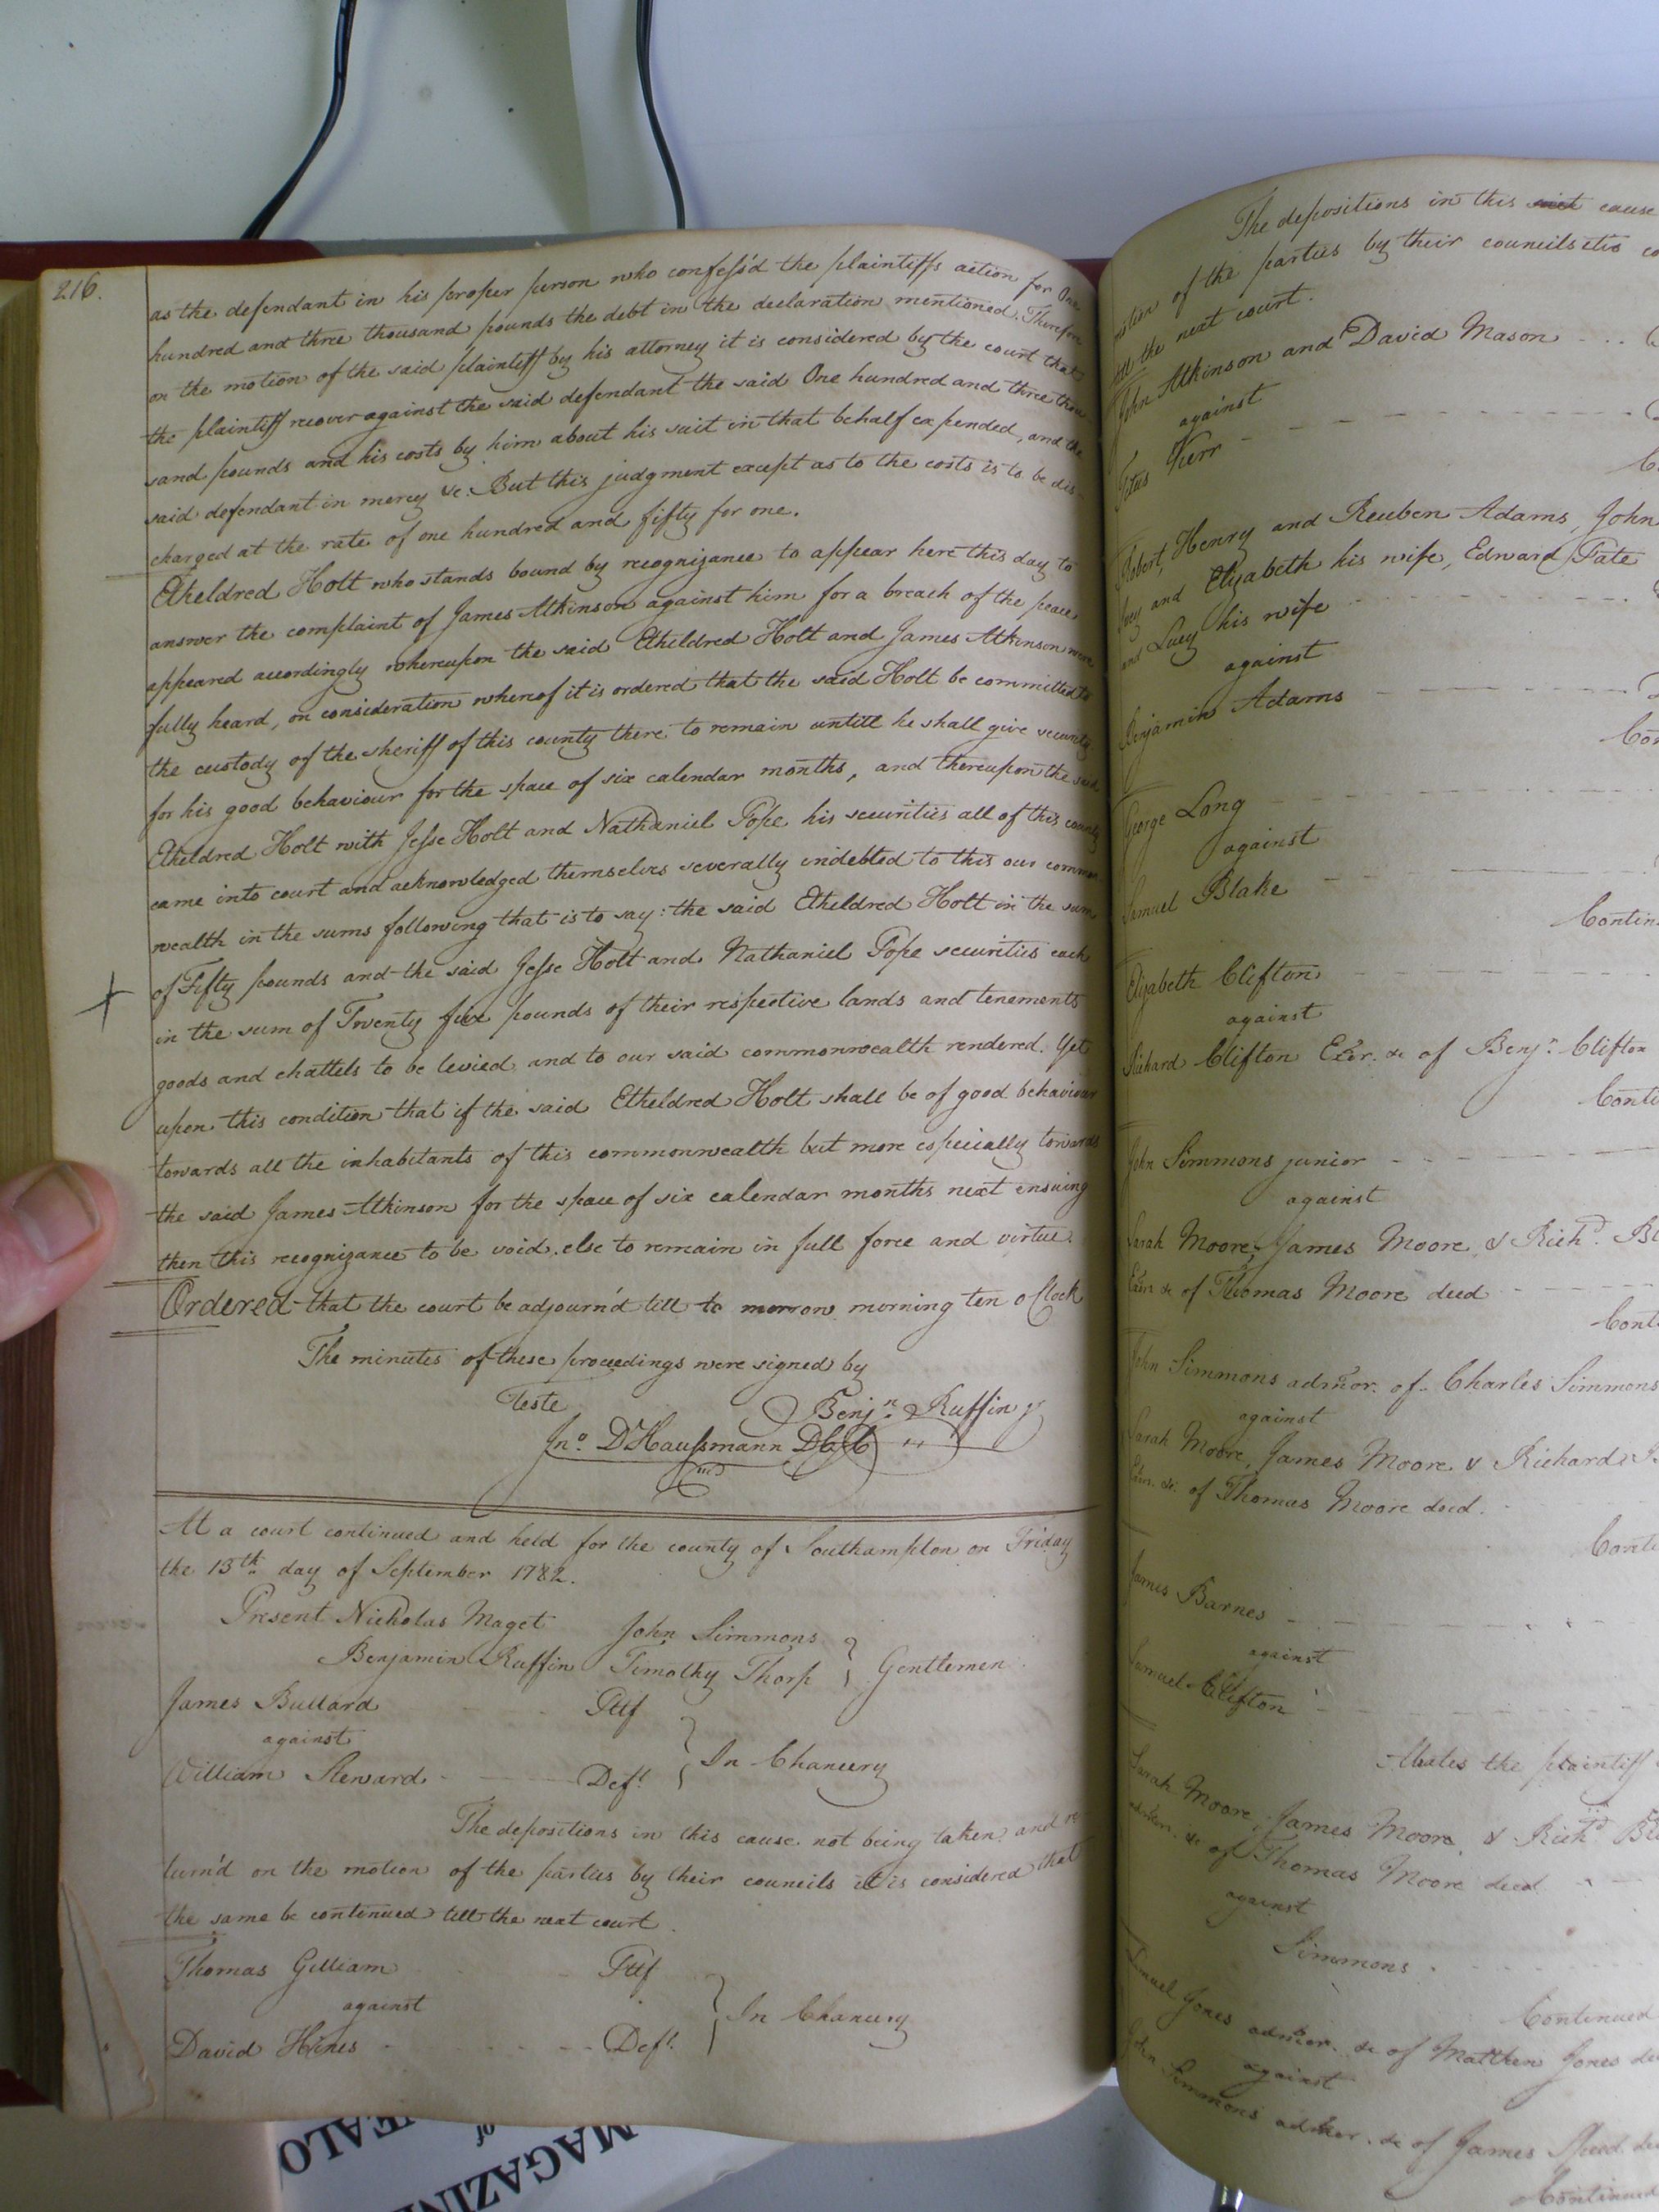 216.
as the defendant in his proper person who confess'd the plaintiffs action for One
hundred and three thousand pounds the debt in the declaration mentioned. Therefore
on the motion of the said plaintiff by his attorney it is considered by the court that
the plaintiff recover against the said defendant the said One hundred and three thou
sand pounds and his costs by him about his suit in that behalf expended, and the
said defendant in mercy &c. But this judgment except as to the costs is to be dis-
charged at the rate of one hundred and fifty for one.
Etheldred Holt who stands bound by recognizance to appear here this day to
answer the complaint of James Atkinson against him for a breach of the peace
appeared accordingly whereupon the said Etheldred Holt and James Atkinson were
fully heard, on consideration whereof it is ordered that the said Holt be committed to
the custody of the sheriff of this county there to remain untill he shall give security
for his good behaviour for the space of six calendar months, and thereupon the said
Etheldred Holt with Jesse Holt and Nathaniel Pope his securities all of this county
came into court and acknowledged themselves severally indebted to this our common
wealth in the sums following that is to say: the said Etheldred Holt in the sum
of Fifty pounds and the said Jesse Holt and Nathaniel Pope securities each
in the sum of Twenty five pounds of their respective lands and tenements
goods and chattels to be levied and to our said commonwealth rendered. Yet
upon this condition that if the said Etheldred Holt shall be of good behaviour
towards all the inhabitants of this commonwealth but more especially towards
the said James Atkinson for the space of six calendar months next ensuing
then this recognizance to be void, else to remain in full force and virtue.
Ordered that the court be adjourn'd till to morrow morning ten o Clock
The minutes of these proceedings were signed by
Teste Benjn. Ruffin
Jno. D'Haussmann
At a court continued and held for the county of Southampton on Friday
the 13th day of September 1782.
Present Nicholas Maget John Simmons
Benjamin Ruffin Timothy Thorp } Gentlemen
James Bullard Pltf
against
} In Chancery
William Steward Deft.
The depositions in this cause not being taken and re-
turn'd on the motion of the parties by their councils it is considered that
the same be continued till the next court
Thomas Gilliam Pltf
against
} In Chancery
David Hines Deft.
The depositions in this cause
of the parties by their councils
the next court.
John Atkinson and David Mason
against
Titus Kerr
Robert, Henry and Reuben Adams, John
and Elizabeth his wife, Edward Tate
and Lucy his wife
against
Benjamin Adams
George Long
against
Samuel Blake
Contin
Elizabeth Clifton
against
Richard Clifton Exer. &c of Benjn. Clifton
Conti
John Simmons junior
against
Sarah Moore, James Moore, & Richd. Bl
of Thomas Moore decd
Cont
John Simmons admor. of Charles Simmons
against
Sarah Moore, James Moore & Richard
&c. of Thomas Moore decd.
Conti
James Barnes
against
Samuel Clifton
Abates the plaintiff
Sarah Moore, James Moore, & Richd.
of Thomas Moore decd
against
Simmons
Continued
Samuel Jones admor. &c of Matthew Jones
against
John Simmons &c of James
Continued
MAGAZIN
of